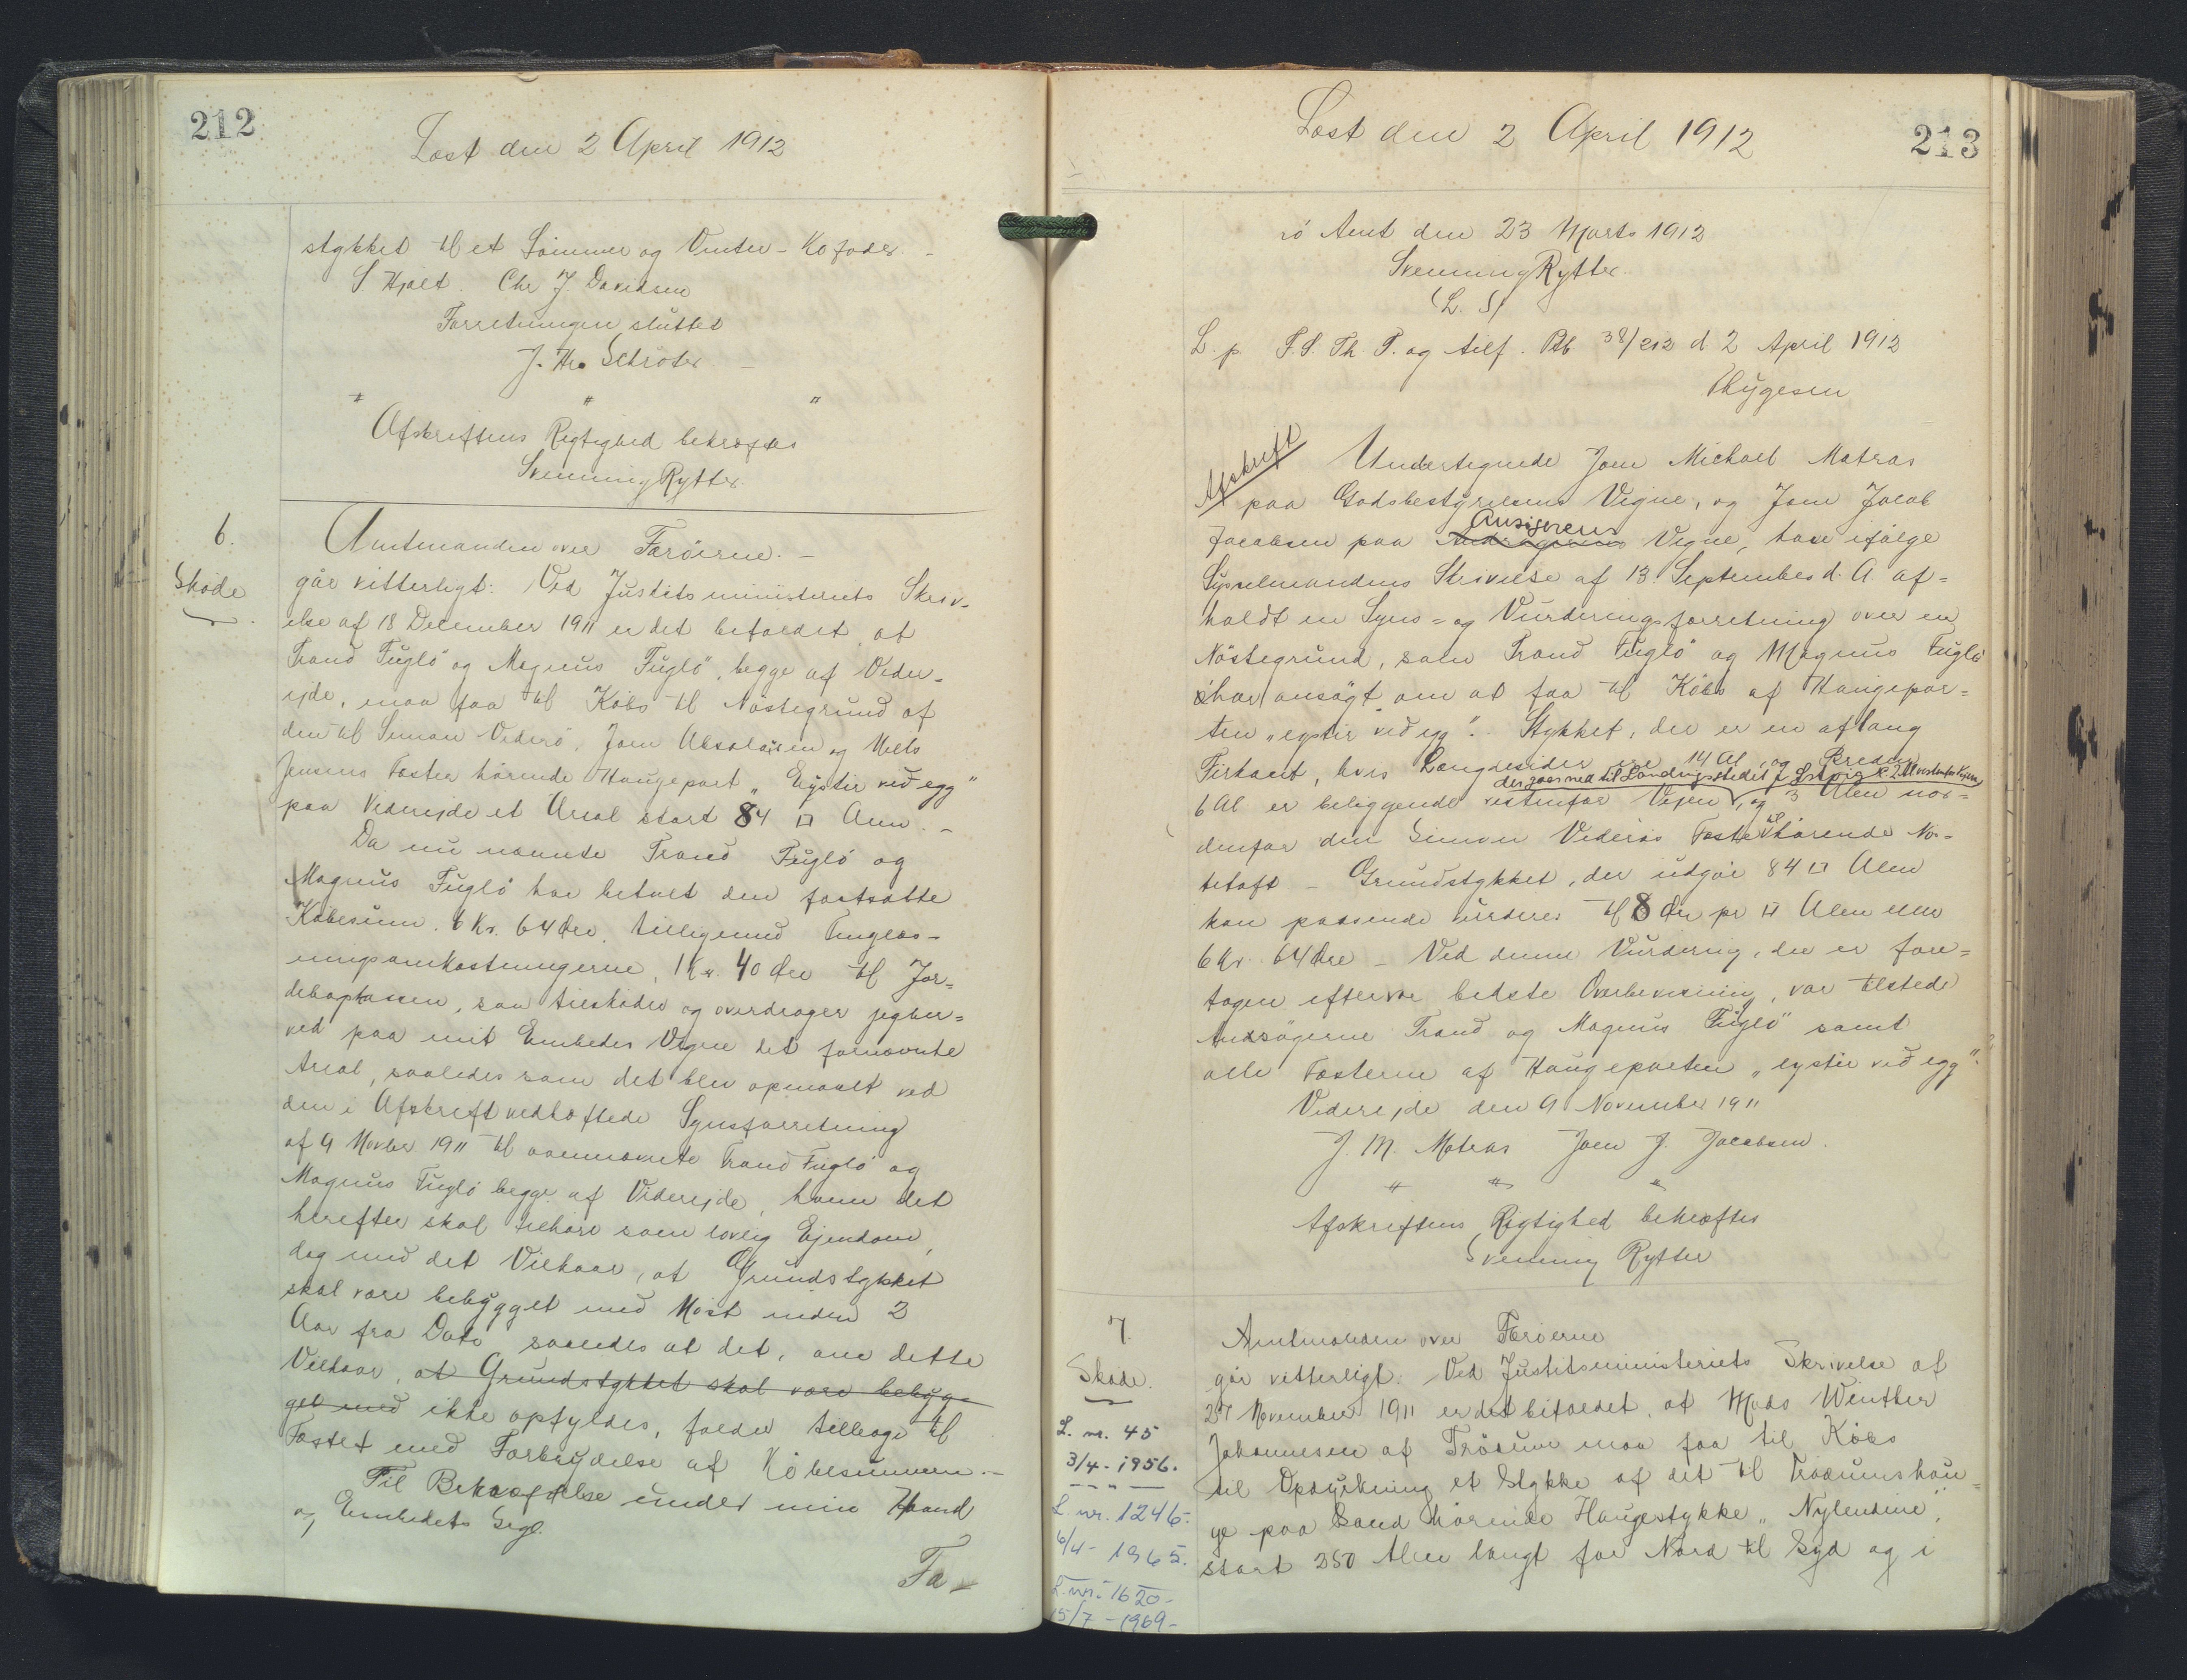 212
Læst den 2 April 1912
stykket til et Sommer og Vinter-Kofoder.-
S Hjalt. Chr J. Davidsen
Forretningen sluttet
J. Hr. Schrøter
" " "
Afskriftens Rigtighed bekræftes
Svenning Rytter.
6.
Skøde
Amtmanden over Færöerne.-
gör vitterligt: Ved Justitsministeriets Skriv-
else af 18 December 1911 er det bifaldet, at
Trand Fuglö og Magnus Fuglö, begge af Vider-
ejde, maa faa til Köbs til Nöstegrund af
den til Simon Viderö, Joen Absalonsen og Niels
Jensens Fæster hörende Haugepart „Eystir við egg"
paa Viderejde et Areal stort 84 □ Alen.-
Da nu nævnte Trand Fuglö og
Magnus Fuglö har betalt den fastsatte
Köbesum. 6 Kr. 64 Øre, tilligemed Tinglæs-
ningsomkostningerne, 1 Kr. 40 Øre til Jor-
debogskassen, saa tilsköder og overdrager jeg her-
ved paa mit Embedes Vegne det fornævnte
Areal, saaledes som det blev opmaalt ved
den i Afskrift vedhæftede Synsforretning
af 9 Novber 1911 til ovennævnte Trand Fuglö og
Magnus Fuglö begge af Viderejde, hvem det
herefter skal tilhöre som lovlig Ejendom,
dog med det Vilkaar, at Grundstykket
skal være bebygget med Nöst inden 2
Aar fra Dato saaledes at det, om dette
Vilkaar, at Grundstykket skal være bebyg-
get med ikke opfyldes, falder tilbage til
Fæstet med Forbrydelse af Köbesummen.-
Til Bekræftelse under min Haand
og Embedets Segl.
Fæ-
213
Læst den 2 April 1912
rö Amt den 23 Marts 1912
Svenning Rytter.
(L. S)
L. p. S. S. Th. T. og tilf. Ptb 38/212 d 2 April 1912
Thygesen
Afskrift
Undertegnede Joen Michael Matras
paa Godsbestyrelsens Vegne, og Joen Jacob
Ansögerens
Jacobsen paa Vegne, have ifölge
Sysselmandens Skrivelse af 13 September d. A. af-
holdt en Syns- og Vurderingsforretning over en
Nöstegrund, som Trand Fuglö og Magnus Fuglö
har ansögt om at faa til Köbs af Haugepar-
ten „eystir við egg". Stykket, der er en aflang
Firkant, hvis Længdesider ere 14 Al., og Breden
der gaar ned til Landingsstedet 2 Al vestenfor Vejen
6 Al. er beliggende vestenfor Vejen, og 3 Alen nor-
denfor den Simon Viderös Fæste tilhörende No-
tetoft - Grundstykket, der udgör 84 □ Alen
kan passende vurderes til 8 Øre pr □ Alen eller
6 Kr. 64 Øre - Ved denne Vurdering, der er fore-
tagen efter vor bedste Overbevisning, var tilstede
Ansögerne Trand og Magnus Fuglö samt
alle Fæsterne af Haugeparten „eystir við egg".
Viderejde den 9 November 1911
J. M. Matras Joen J. Jacobsen.
" " "
Afskriftens Rigtighed bekræftes
Svenning Rytter
7.
Skøde.
L. nr. 45
3/4-1956.
L. nr. 1246-
6/4-1965.
L. nr. 1620-
15/7-1969-
Amtmanden over Færöerne
gör vitterligt: Ved Justitsministeriets Skrivelse af
27 November 1911 er det bifaldet, at Mads Winther
Johannesen af Tröðum maa faa til Köbs
til Opdyrkning et Stykke af det til Traðumshau-
ge paa Sand hörende Haugestykke „Nylendine",
stort 250 Alen langt fra Nord til Syd og i